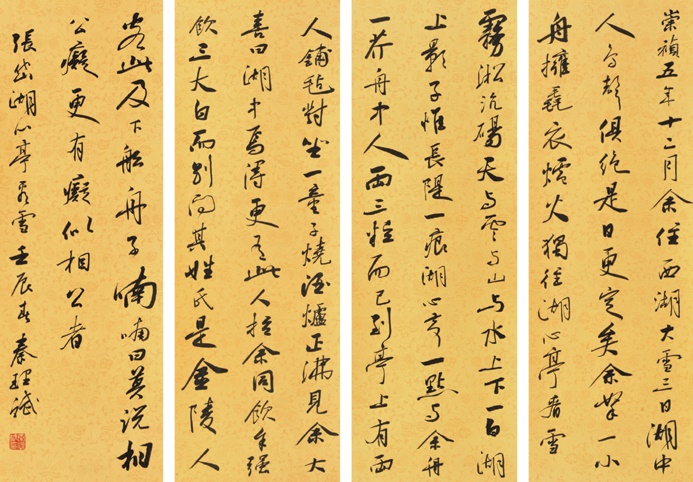 崇禎五年十二月余住西湖大雪三日湖中
人鳥聲俱絕是日更定矣余拏一小
舟擁毳衣爐火獨往湖心亭看雪
霧淞沆碭天与雲与山与水上下一白湖
上影子惟長隄一痕湖心亭一點与余舟
一芥舟中人兩三粒而已到亭上有兩
人鋪氈對坐一童子燒酒爐正沸見余大
喜曰湖中焉得更有此人拉余同飲余强
飲三大白而別問其姓氏是金陵人
客此及下船舟子喃喃曰莫說相
公癡更有癡似相公者
張岱湖心亭看雪壬辰春秦理斌